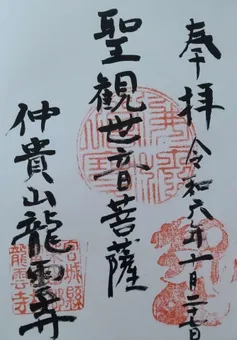 奉拝 令和六年十月二十日
聖観世音菩薩
仲貴山龍雲寺
宮城縣
龍雲寺